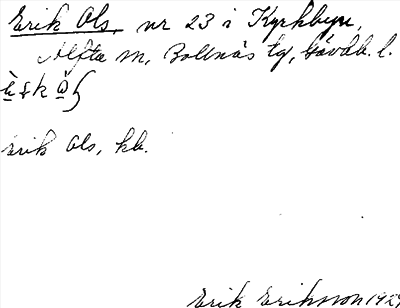 Erik Ols, nr 23 i Kyrkbyn,
Alfta sn, Bollnäs tg, Gävleb. l.
Erik Ols, kb.
Erik Eriksson 192